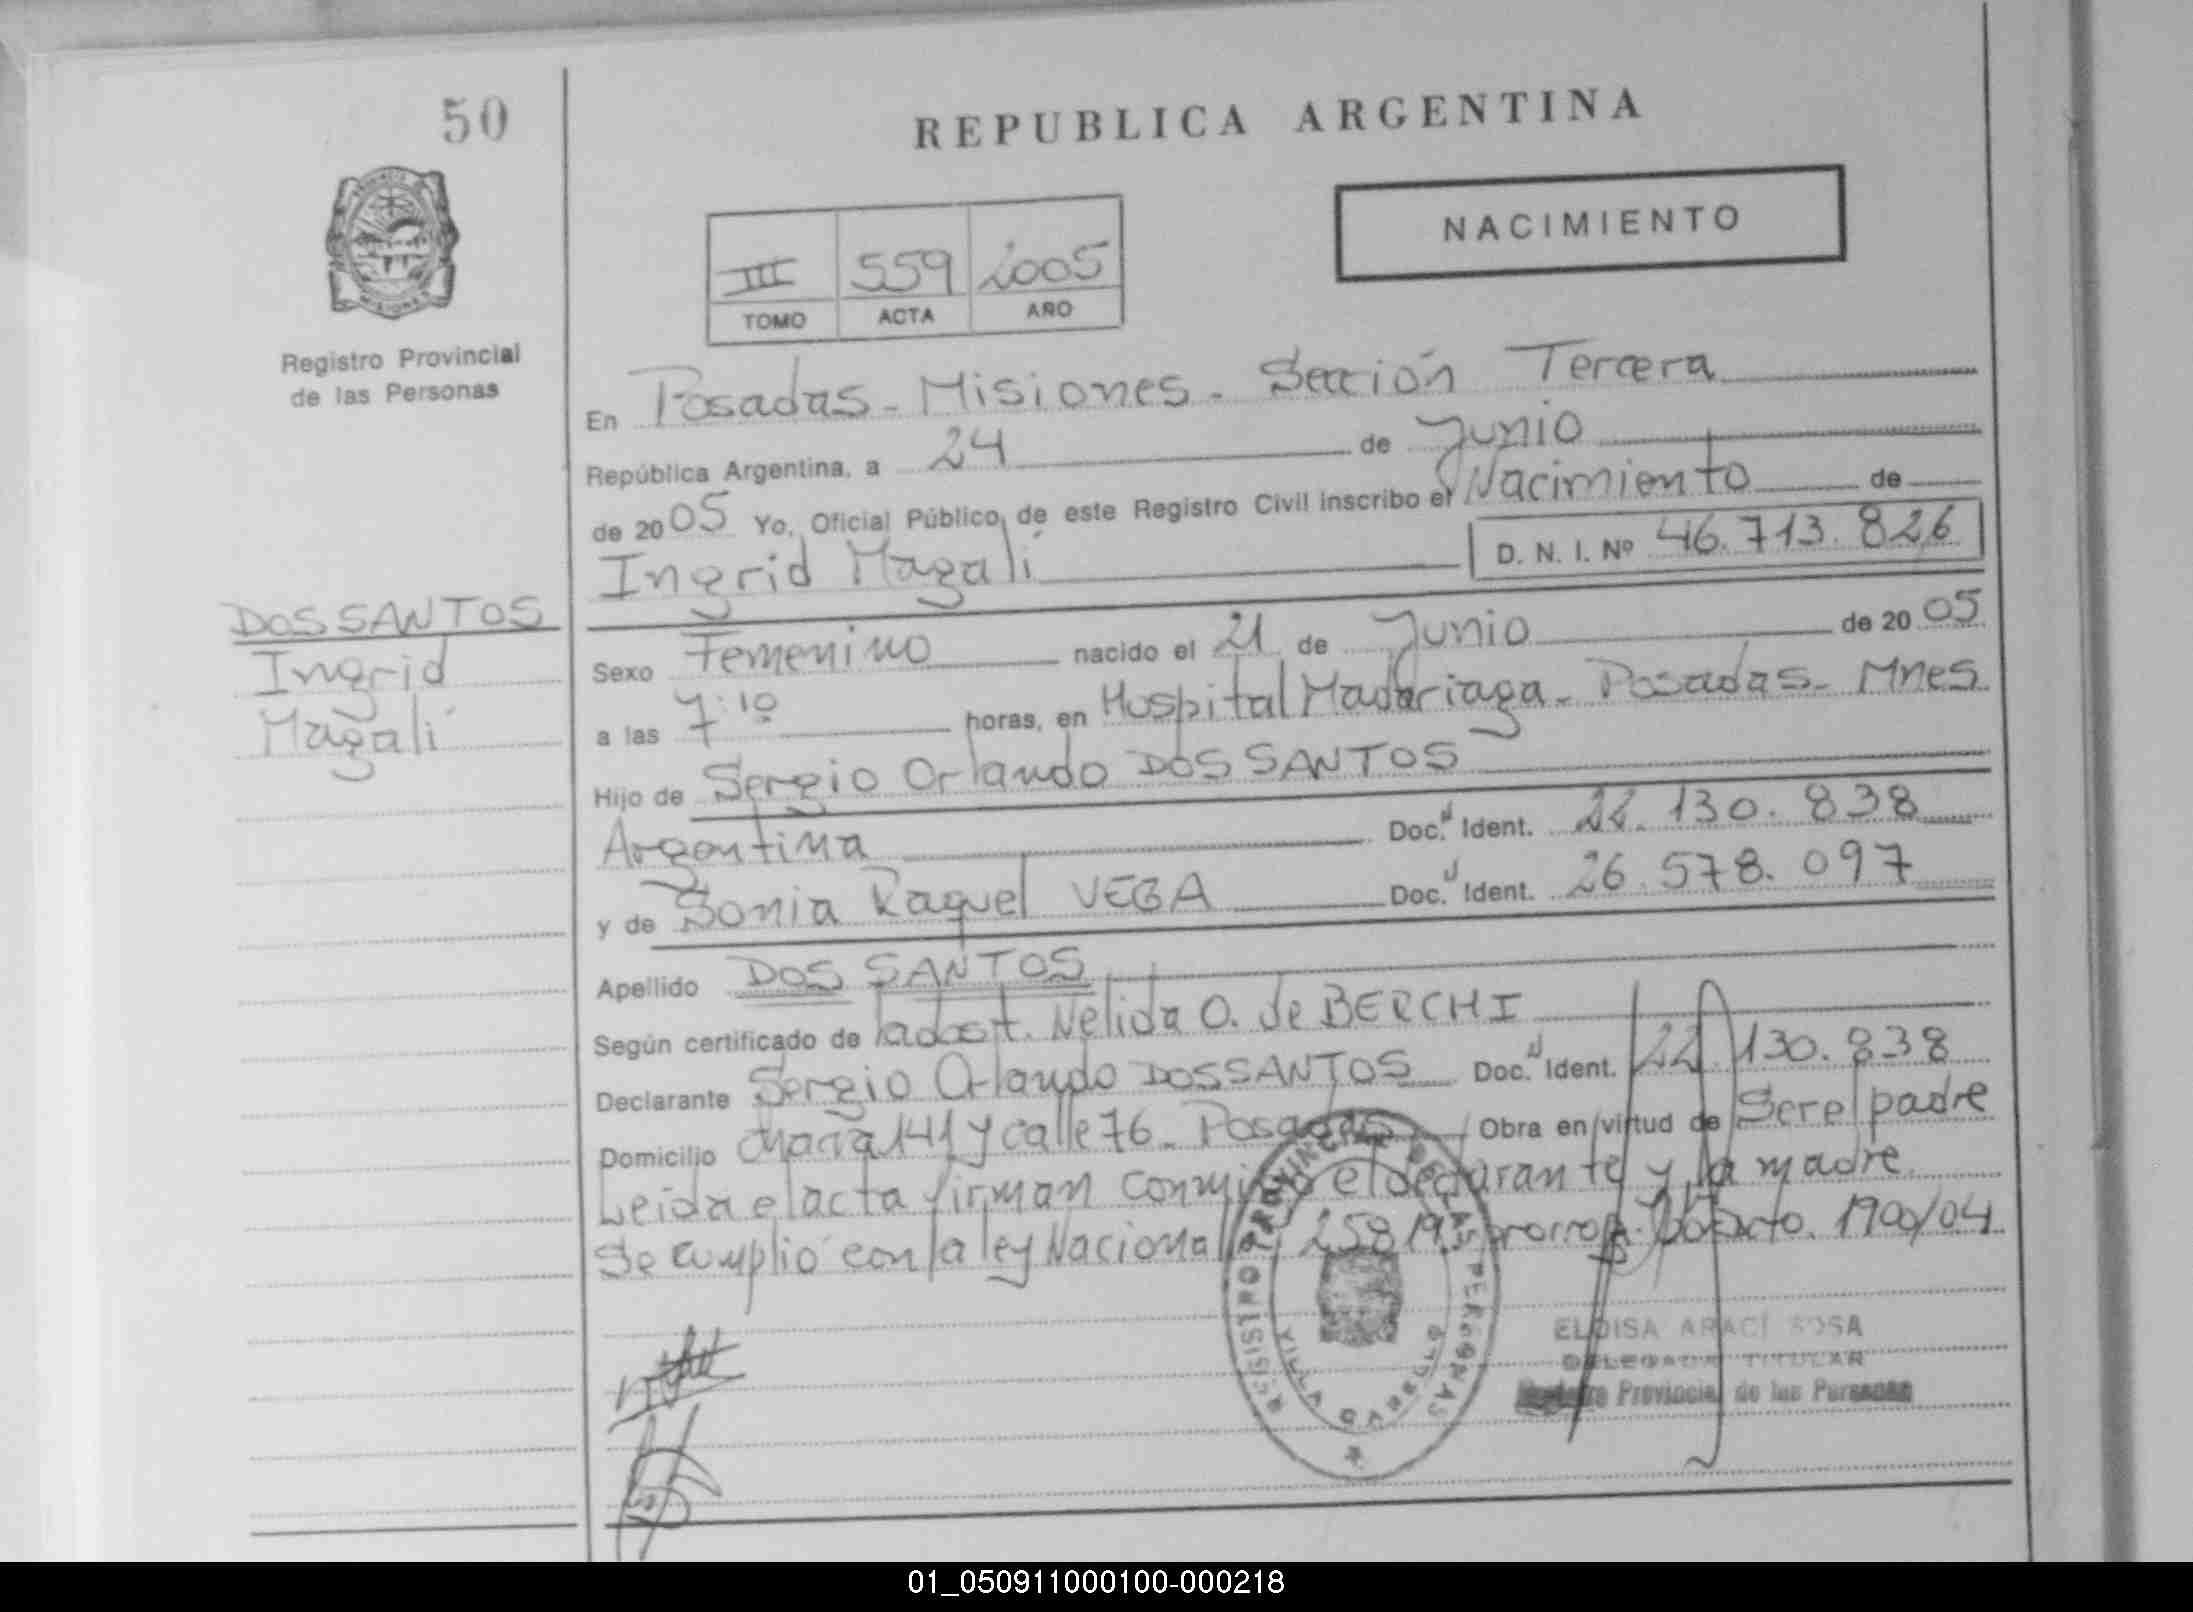 50
REPUBLICA ARGENTINA
NACIMIENTO
III 559 2005
TOMO ACTA AÑO
Registro Provincial
de las Personas
En Posadas - Misiones - Sección Tercera
República Argentina, a 24 de Junio
de 2005 Yo, Oficial Público, de este Registro Civil inscribo el Nacimiento de
Ingrid Magalí D. N. I. Nº 46.713.826
DOS SANTOS
Ingrid
Magalí
Sexo Femenino nacido el 21 de Junio de 2005
a las 7:10 horas, en Hospital Madariaga - Posadas - Mnes
Hijo de Sergio Orlando DOS SANTOS
Argentina Doc. Ident. 22.130.838
y de Sonia Raquel VEGA Doc. Ident. 26.578.097
Apellido DOS SANTOS
Según certificado de la obst. Nélida O. de BERCHI
Declarante Sergio Orlando DOS SANTOS Doc. Ident. 22.130.838
Domicilio Chacra 141 y calle 76 - Posadas Obra en virtud de Ser el padre
Leida el acta firman conmigo el declarante y la madre.
Se cumplió con la ley Nacional 25819 prorrog. 1900/04
REGISTRO PROVINCIAL DE LAS PERSONAS
VILLA
ELOISA ARACÍ SOSA
DELEGADA TITULAR
Registro Provincial de las Personas
01_050911000100-000218